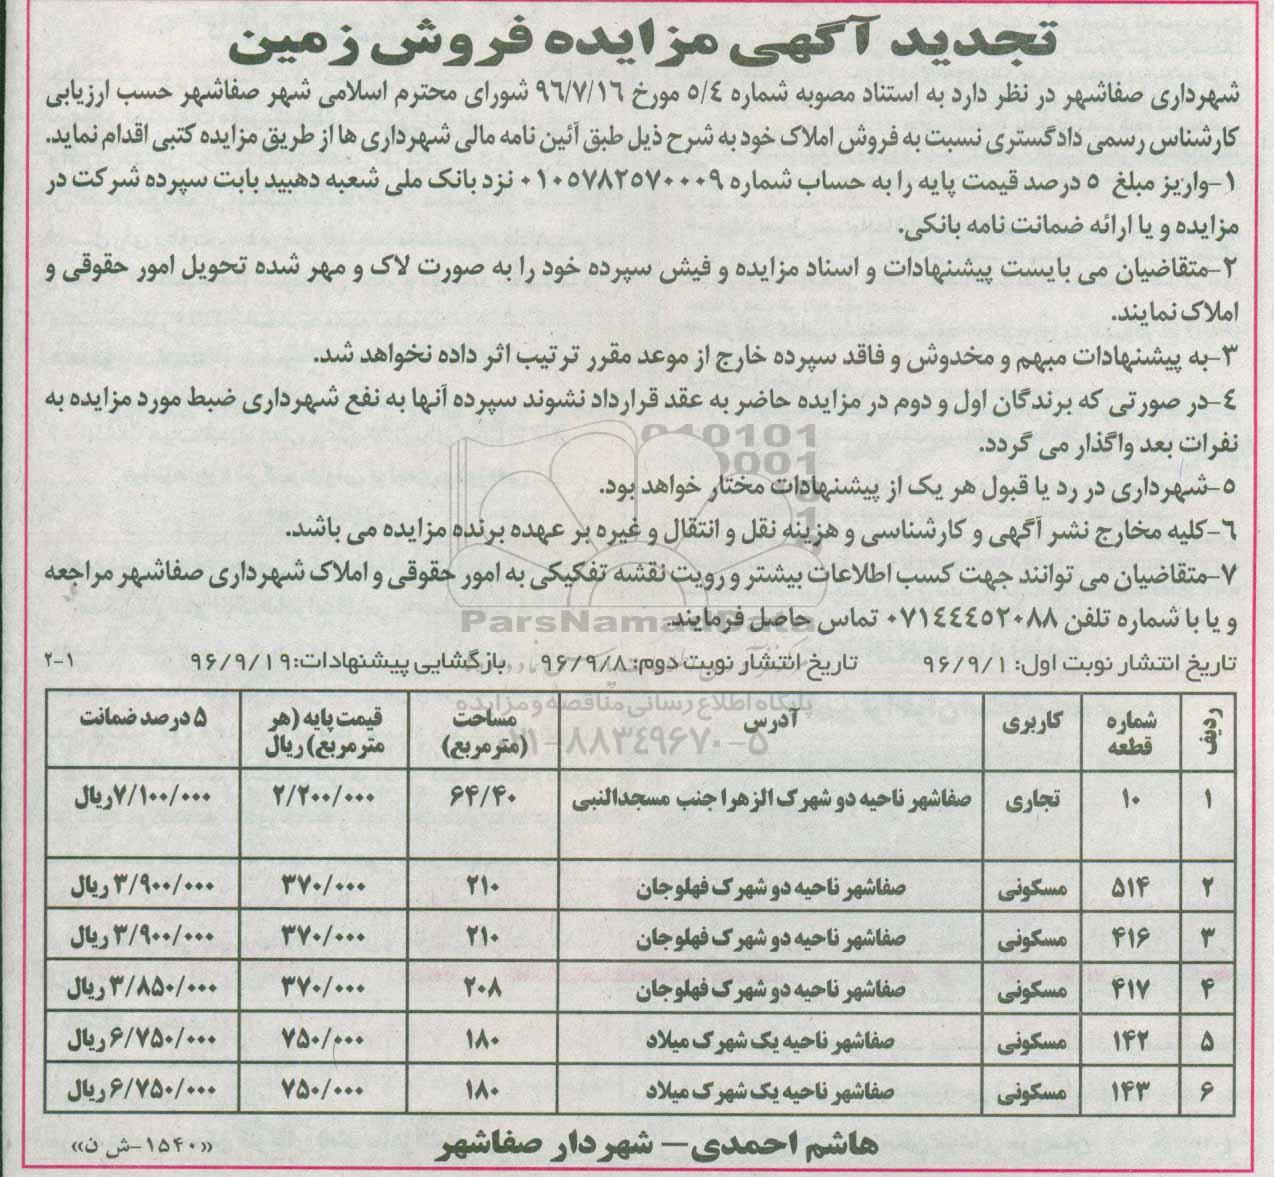 تجدید آگهی مزایده فروش زمین
شهرداری صفاشهر در نظر دارد به استناد مصوبه شماره ۵/۴ مورخ ۹۶/۷/۱۶ شورای محترم اسلامی شهر صفاشهر حسب ارزیابی
کارشناس رسمی دادگستری نسبت به فروش املاک خود به شرح ذیل طبق آئین نامه مالی شهرداری ها از طریق مزایده کتبی اقدام نماید.
۱-واریز مبلغ ۵ درصد قیمت پایه را به حساب شماره ۰۱۰۵۷۸۲۵۷۰۰۰۹ نزد بانک ملی شعبه دهبید بابت سپرده شرکت در
مزایده و یا ارائه ضمانت نامه بانکی.
۲-متقاضیان می بایست پیشنهادات و اسناد مزایده و فیش سپرده خود را به صورت لاک و مهر شده تحویل امور حقوقی و
املاک نمایند.
۳-به پیشنهادات مبهم و مخدوش و فاقد سپرده خارج از موعد مقرر ترتیب اثر داده نخواهد شد.
۴-در صورتی که برندگان اول و دوم در مزایده حاضر به عقد قرارداد نشوند سپرده آنها به نفع شهرداری ضبط مورد مزایده به
نفرات بعد واگذار می گردد.
۵-شهرداری در رد یا قبول هر یک از پیشنهادات مختار خواهد بود.
۶-کلیه مخارج نشر آگهی و کارشناسی و هزینه نقل و انتقال و غیره بر عهده برنده مزایده می باشد.
۷-متقاضیان می توانند جهت کسب اطلاعات بیشتر و رویت نقشه تفکیکی به امور حقوقی و املاک شهرداری صفاشهر مراجعه
و یا با شماره تلفن ۰۷۱۴۴۴۵۲۰۸۸ تماس حاصل فرمایند.
ParsNamadData
تاریخ انتشار نوبت اول: ۹۶/۹/۱ تاریخ انتشار نوبت دوم: ۹۶/۹/۸ بازگشایی پیشنهادات: ۹۶/۹/۱۹ ۲-۱
پایگاه اطلاع رسانی مناقصه و مزایده
۰۲۱-۸۸۳۴۹۶۷۰-۵
ردیف شماره قطعه کاربری آدرس مساحت (مترمربع) قیمت پایه (هر مترمربع) ریال ۵ درصد ضمانت
۱ ۱۰ تجاری صفاشهر ناحیه دو شهرک الزهرا جنب مسجدالنبی ۶۴/۴۰ ۲/۲۰۰/۰۰۰ ۷/۱۰۰/۰۰۰ریال
۲ ۵۱۴ مسکونی صفاشهر ناحیه دو شهرک فهلوجان ۲۱۰ ۳۷۰/۰۰۰ ۳/۹۰۰/۰۰۰ ریال
۳ ۴۱۶ مسکونی صفاشهر ناحیه دو شهرک فهلوجان ۲۱۰ ۳۷۰/۰۰۰ ۳/۹۰۰/۰۰۰ ریال
۴ ۴۱۷ مسکونی صفاشهر ناحیه دو شهرک فهلوجان ۲۰۸ ۳۷۰/۰۰۰ ۳/۸۵۰/۰۰۰ ریال
۵ ۱۴۲ مسکونی صفاشهر ناحیه یک شهرک میلاد ۱۸۰ ۷۵۰/۰۰۰ ۶/۷۵۰/۰۰۰ ریال
۶ ۱۴۳ مسکونی صفاشهر ناحیه یک شهرک میلاد ۱۸۰ ۷۵۰/۰۰۰ ۶/۷۵۰/۰۰۰ ریال
هاشم احمدی – شهردار صفاشهر
«۱۵۴۰-ش ن»